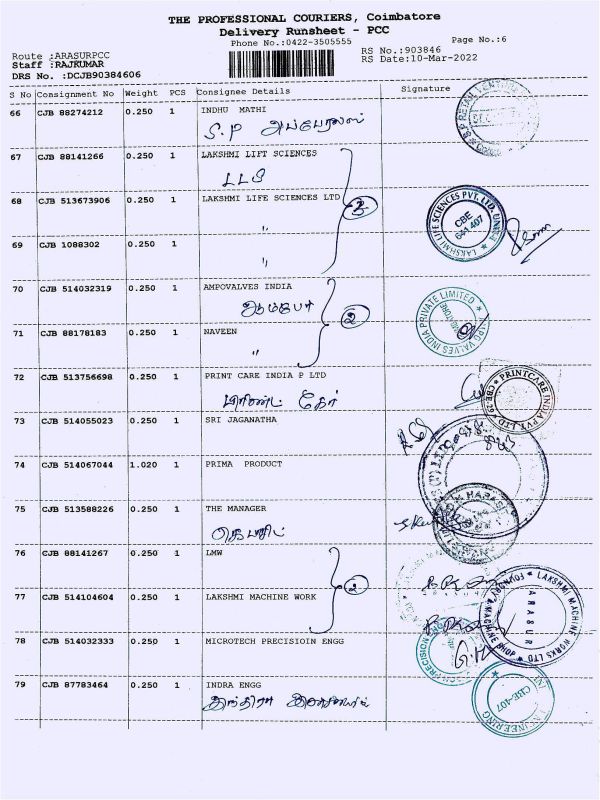 THE PROFESSIONAL COURIERS, Coimbatore
Delivery Runsheet - PCC
Phone No.:0422-3505555
Page No.:6
Route :ARASURPCC
RS No.:903846
Staff :RAJKUMAR
RS Date:10-Mar-2022
DRS No. :DCJB90384606
S No Consignment No Weight PCS Consignee Details Signature
66 CJB 88274212 0.250 1 INDHU MATHI
S.P அப்பேரல்ஸ்
67 CJB 88141266 0.250 1 LAKSHMI LIFT SCIENCES
68 CJB 513673906 0.250 1 LAKSHMI LIFE SCIENCES LTD
"
LAKSHMI LIFE SCIENCES PVT. LTD.
CBE
641 407
69 CJB 1088302 0.250 1
"
70 CJB 514032319 0.250 1 AMPOVALVES INDIA
2
VALVES INDIA PRIVATE LIMITED
71 CJB 88178183 0.250 1 NAVEEN
"
72 CJB 513756698 0.250 1 PRINT CARE INDIA P LTD
பிரிண்ட் கேர்
PRINTCARE INDIA PVT. LTD
73 CJB 514055023 0.250 1 SRI JAGANATHA
74 CJB 514067044 1.020 1 PRIMA PRODUCT
75 CJB 513588226 0.250 1 THE MANAGER
76 CJB 88141267 0.250 1 LMW
2
77 CJB 514104604 0.250 1 LAKSHMI MACHINE WORK
LAKSHMI MACHINE WORKS LTD
FOUNDRY & MACHINE SHOP
ARASUR
78 CJB 514032333 0.250 1 MICROTECH PRECISIOIN ENGG
PRECISION
79 CJB 87783464 0.250 1 INDRA ENGG
இந்திரா
CBE-407